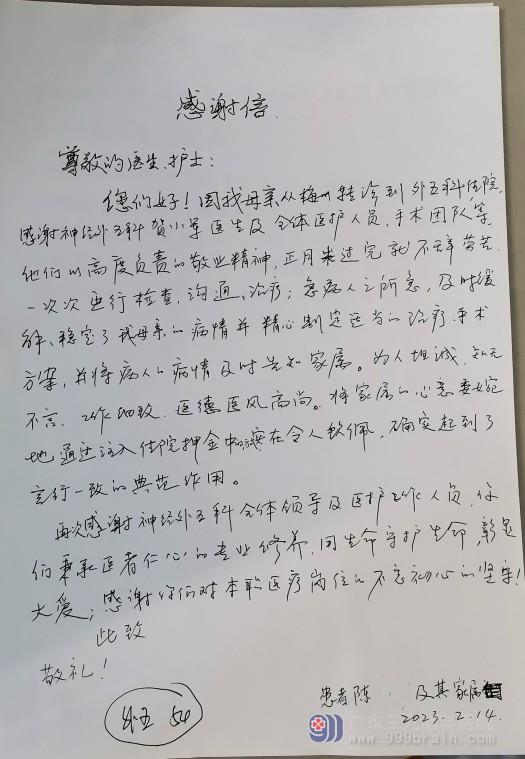 感谢信
尊敬的医生、护士：
您们好！因我母亲从梅州转诊到外五科住院,
感谢神经外五科贺小军医生及全体医护人员、手术团队等
他们以高度负责的敬业精神,正月未过完就不辞劳苦
一次次进行检查、沟通、治疗；急病人之所急,及时缓
解、稳定了我母亲的病情并精心制定适当的治疗、手术
方案,并将病人的病情及时告知家属。为人坦诚、知无
不言、工作细致、医德医风高尚。将家属的心意委婉
地通过注入住院押金中的实在令人钦佩,确实起到了
言行一致的典范作用。
再次感谢神经外五科全体领导及医护工作人员,你
们秉承医者仁心的专业修养,用生命守护生命,彰显
大爱；感谢你们对本职医疗岗位的不忘初心的坚守！
此致
敬礼！
患者陈 及其家属
2023.2.14.
外五 54
www.999brain.com